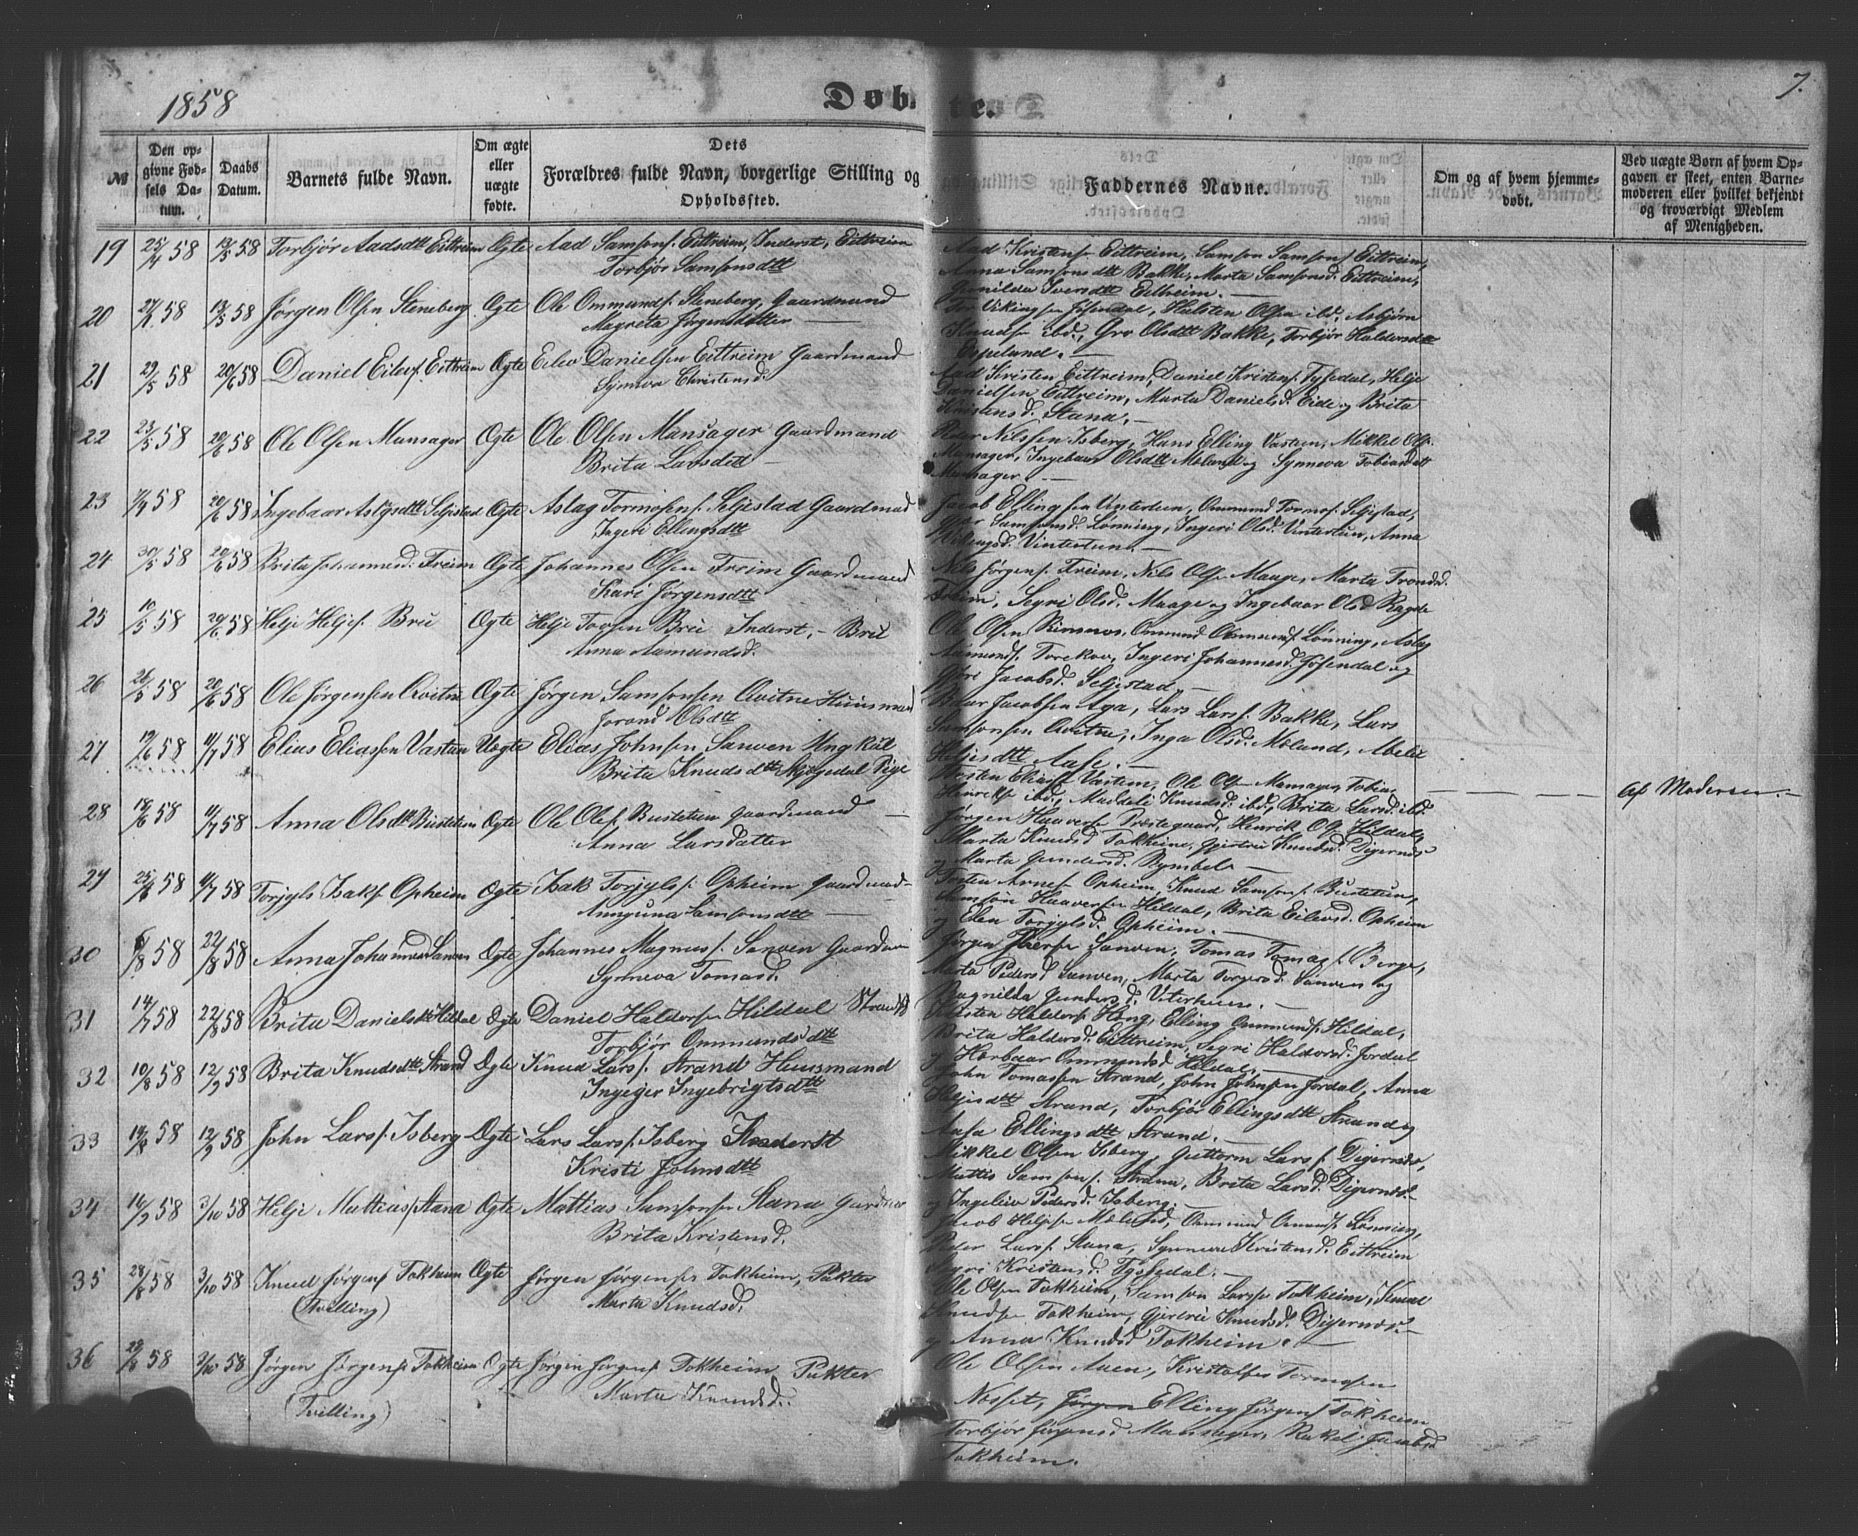 1858
Døbte.
7.
№
Den opgivne Fødsels Datum.
Daabs Datum.
Barnets fulde Navn.
Om ægte eller uægte fødte.
Dets Forældres fulde Navn, borgerlige Stilling og Opholdssted.
Faddernes Navne.
Om og af hvem hjemmedøbt.
Ved uægte Børn af hvem Opgaven er skeet, enten Barnemoderen eller hvilket bekjendt og troværdigt Medlem af Menigheden.
19 25/4 58 13/5 58 Torbjør Aadsdtt Eittreim Ægte Aad Samsons. Eittreim, Inderst, Eittreim
Torbjør Samsonsdtt
Aad Kristense Eittreim, Samson Samsons Eittreim,
Anna Samsonsdtt Bakke, Marta Samsonsd. Eittreim,
Gunilda Iversdtt Eittreim. —
20 58 13/5 58 Jørgen Olsen Steneberg Ægte Ole Ommunds. Steneberg, Gaardmand
Magreta Jørgensdatter —
Tor Vikingsen Jøsendal, Halsten Olsen ibd., Asbjørn
Knudsen ibd., Gro Olsdtt Bakke, Torbjør Haldorsdtt
Espeland. —
21 29/5 58 20/6 58 Daniel Eilevs. Eittreim Ægte Eilev Danielsen Eittreim Gaardmand
Synneva Christensd.
Aad Kristen Eittreim, Daniel Kristens. Tyssedal, Helje
Danielsen Eittreim, Marta Danielsd. Eide og Brita
Kristensd. Stana. —
22 23/5 58 20/6 58 Ole Olsen Mansager Ægte Ole Olsen Mansager Gaardmand
Brita Larsdtt —
Peder Nilssen Isberg, Hans Elling Vastun, Mikkel Ols.
Mansager, Ingebaar Olsdtt Moland og Synneva Tobiasdtt
Mansager. —
23 58 20/6 58 Ingebaar Aslagsdtt Seljestad Ægte Aslag Tormosen. Seljestad Gaardmand
Ingeri Ellingsdtt
Jacob Ellingsen Vintertun, Ommund Tormos. Seljestad,
Samsonsd. Lønning, Ingeri Olsd. Vintertun, Anna
Vintertun. —
24 30/5 58 20/6 58 Brita Johannesd. Freim Ægte Johannes Olsen Freim Gaardmand
Kari Jørgensdtt
Nils Jørgens. Freim, Nils Olsen Maage, Marta Trondsd.
Freim, Segri Olsd. Maage og Ingebaar Olsd Ragde
25 16/5 58 20/6 58 Helje Heljes. Bru Ægte Helje Torsen Bru Inderst, — Bru
Anna Aamundsd.
Ole Olsen Ommund Ommunds. Lønning, Aslag
Aamunds. Torekov, Ingeri Johannesd. Jøsendal og
Jacobsd. Seljestad. —
26 26/5 58 20/6 58 Ole Jørgensen Qvitne Ægte Jørgen Samsonsen Qvitne Huusmand
Jorand Olsdtt
Jacobsen Aga, Lars Lars s. Bakke, Lars
Samsonsen Qvitne, Inga Olsd. Moland, Abelie
Heljesdtt Aase. —
27 19/6 58 11/7 58 Elias Eliassen Vastun Uægte Elias Johnsen Sanven Ungkarl
Brita Knudsdtt Skjegedal Pige
Torsten Eliass. Vastun, Ole Olsen Mansager, Tobias
Henriks. ibd., Maddeli Knudsd. ibd., Brita Larsd. ibd.
af Moderen —
28 18/6 58 11/7 58 Anna Olsdtt Bustetun Ægte Ole Ols. Bustetun Gaardmand —
Anna Larsdatter
Jørgen Haaverse Prestegaard, Henrik Ols. Hildal,
Marta Knudsd Tokheim, Gjertru Knudsd. Digernes
og Marta Gundersd. —
29 25/6 58 11/7 58 Torjyls Isaks. Opheim Ægte Isak Torjyls s. Opheim Gaardmand —
Samsonsdtt —
Torsten Arnes. Opheim, Knud Samsons. Bustetun,
Samson Haaversen Hildal, Brita Eilevsd. Opheim
og Elen Torjylsd. Opheim. —
30 6/8 58 22/8 58 Anna Johannesd Sanven Ægte Johannes Magnus s. Sanven Gaardm
Synneva Tomasd.
Jørgen Sanven, Tomas Tomas s. Berge,
Marta Pedersd Sanven, Marta Torgersd. Sanven og
Ragnilda Gundersd. —
31 14/7 58 22/8 58 Brita Danielsdtt Hildal Ægte Daniel Haldorsen Hildal
Torbjør Ommundsdtt
Haldors. Elling Ommunds. Hildal,
Brita Haldorsd. Eittreim, Segri Haldorsd. Jordal
og Herbaar Ommundsd. Hildal. —
32 10/8 58 12/9 58 Brita Knudsdtt Strand Ægte Knud Lars s. Strand Huusmand
Ingeger Ingebrigtsdtt
John Tomassen Strand, John Johnsen Jordal, Anna
Heljesdtt Strand, Torbjør Ellingsdtt Strand og
Aasa Ellingsdtt Strand. —
33 58 12/9 58 John Lars s. Isberg Ægte Lars Lars s. Isberg Inderst
Kristi Johnsdtt
Mikkel Olsen Isberg, Guttorm Lars s. Digernes,
Mattis Samsons. Stana, Brita Larsd. Digernes
og Ingeleiv Pedersd. Isberg. —
34 58 3/10 58 Helje Mattias s. Stana Ægte Mattias Samsonsen Stana Gardm
Brita Kristensd.
Jacob Heljese Moland, Ommund Omunds. Lønning,
Peder Lars s. Stana, Synneva Kristensd. Eittreim
Segri Kristensd. Tyssedal. —
35 28/8 58 3/10 58 Knud Jørgens. Tokheim Ægte Jørgen Jørgensen Tokheim, Pukter
(Tvilling)
Marta Knudsd.
Ole Olsen Tokheim, Samson Larsse Tokheim, Knud
Knudsen Tokheim, Gjertru Knudsd. Digernes
og Anna Knudsd Tokheim. —
36 28/8 58 3/10 58 Jørgen Jørgens. Tokheim Ægte Jørgen Jørgens. Tokheim, Pukter
(Tvilling)
Marta Knudsd.
Ole Olsen Aaen, Kristoffer Tormosen
Jørgen Elling Jørgens. Tokheim
Torbjør Jørgensd Mansager, Rakel Jacobsd
Tokheim.